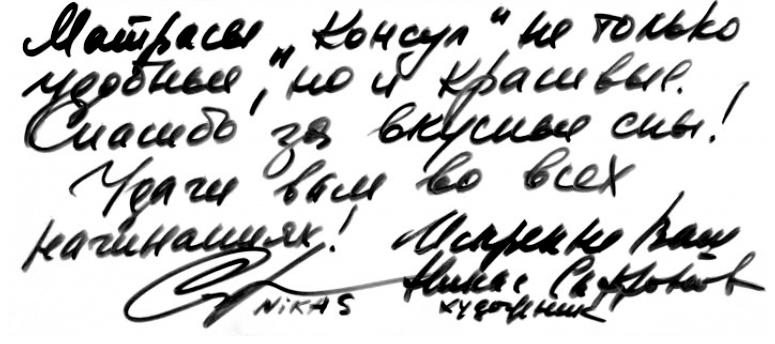 Матрасы „Консул“ не только
удобные, но и красивые.
Спасибо за вкусные сны!
Удачи вам во всех
начинаниях! Искренне Ваш
Никас Сафронов
NIKAS художник